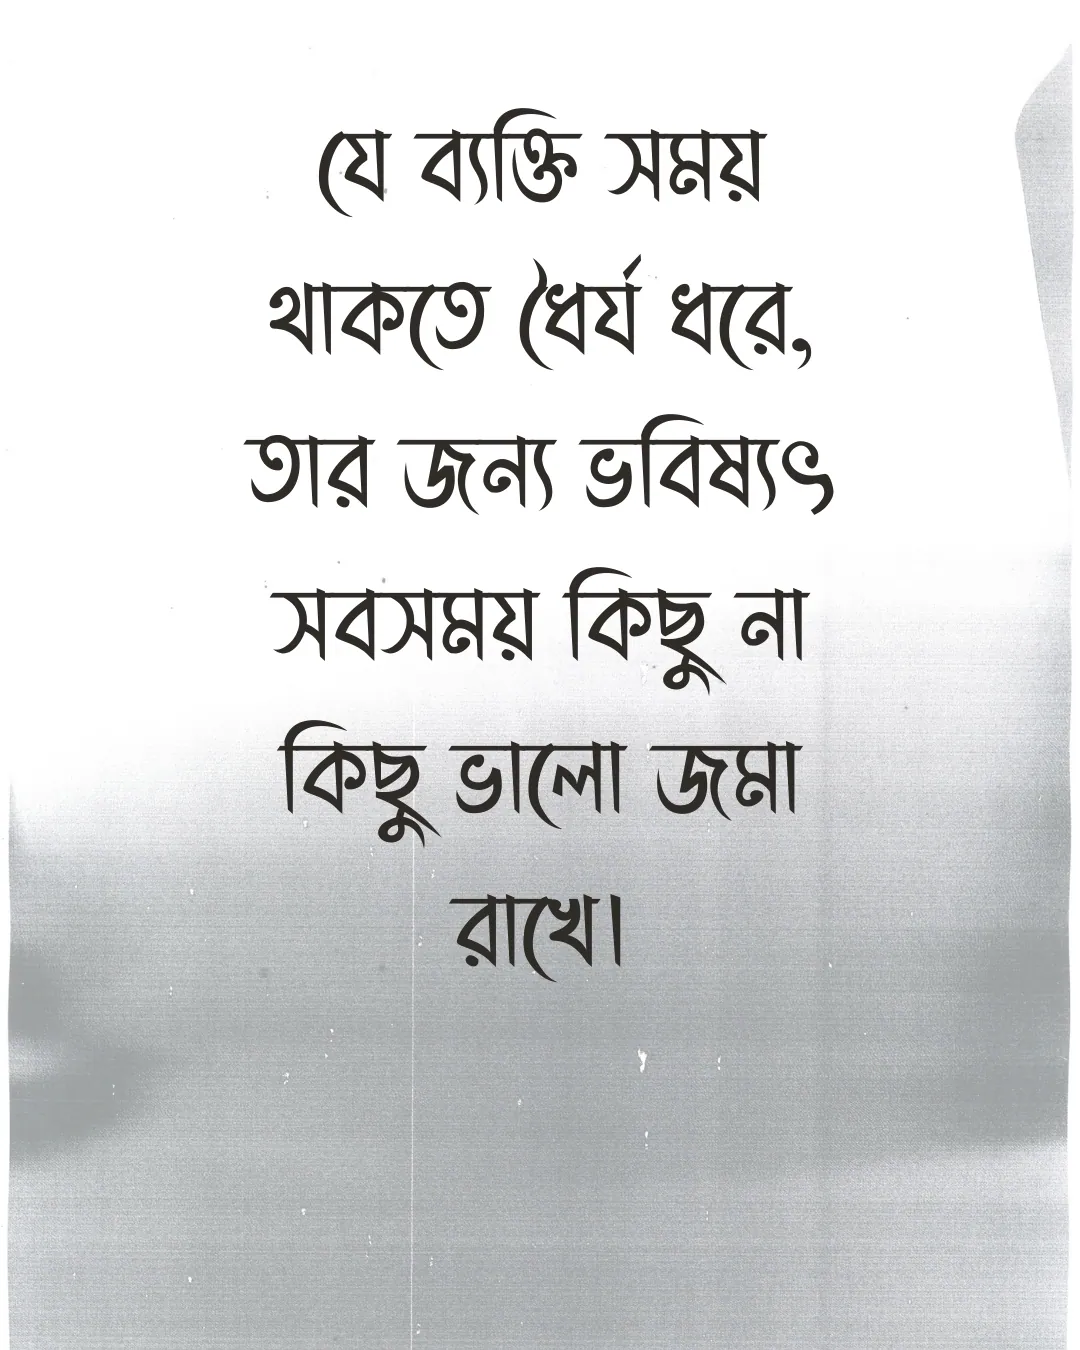 যে ব্যক্তি সময়
থাকতে ধৈর্য ধরে,
তার জন্য ভবিষ্যৎ
সবসময় কিছু না
কিছু ভালো জমা
রাখে।